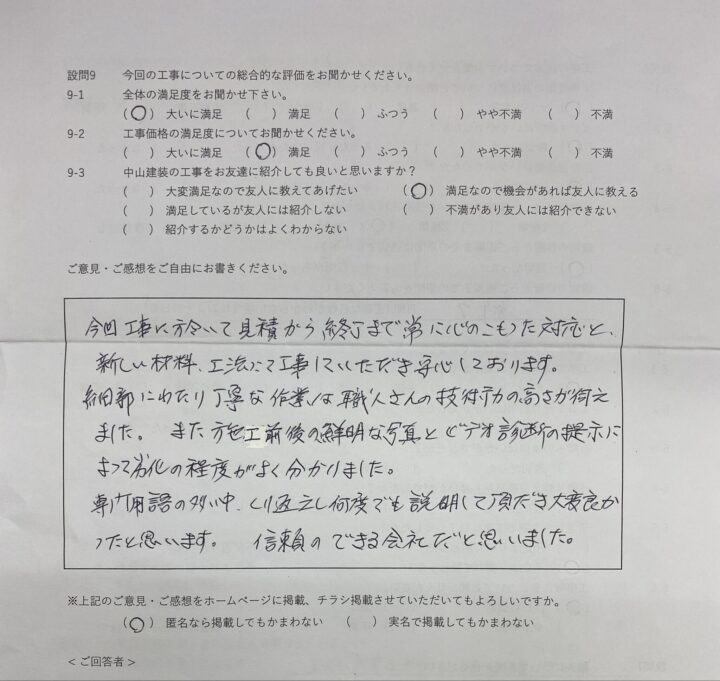 設問9 今回の工事についての総合的な評価をお聞かせください。
9-1 全体の満足度をお聞かせ下さい。
(○) 大いに満足 ( ) 満足 ( ) ふつう ( ) やや不満 ( ) 不満
9-2 工事価格の満足度についてお聞かせください。
( ) 大いに満足 (○) 満足 ( ) ふつう ( ) やや不満 ( ) 不満
9-3 中山建装の工事をお友達に紹介しても良いと思いますか？
( ) 大変満足なので友人に教えてあげたい (○) 満足なので機会があれば友人に教える
( ) 満足しているが友人には紹介しない ( ) 不満があり友人には紹介できない
( ) 紹介するかどうかはよくわからない
ご意見・ご感想をご自由にお書きください。
今回工事に於いて見積から終了まで常に心のこもった対応と、
新しい材料、工法にて工事していただき安心しております。
細部にわたり丁寧な作業は職人さんの技術力の高さが伺え
ました。 また施工前後の鮮明な写真とビデオ診断の提示に
よって劣化の程度がよく分かりました。
専門用語の多い中、くり返えし何度でも説明して頂だき大変良か
ったと思います。 信頼のできる会社だと思いました。
※上記のご意見・ご感想をホームページに掲載、チラシ掲載させていただいてもよろしいですか。
(○) 匿名なら掲載してもかまわない ( ) 実名で掲載してもかまわない
< ご回答者 >